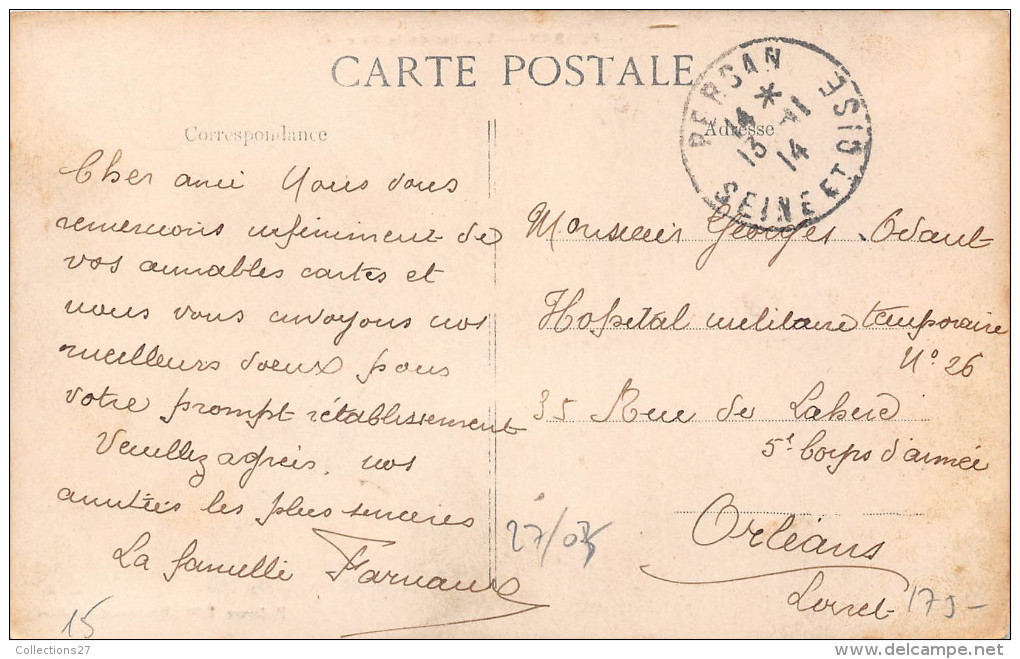 CARTE POSTALE
Correspondance
Adresse
PERSAN
SEINE ET OISE
*
14
13 - 11
14
Cher ami Nous vous
remercions infiniment de
vos aimables cartes et
nous vous envoyons nos
meilleurs voeux pour
votre prompt rétablissement
Veuillez agréer, nos
amitiés les plus sincères
La famille
Monsieur Georges
Hopital militaire temporaire
N° 26
35 Rue de
5e Corps d'armée
Orléans
Loiret
27/05
15
175-
Collections27